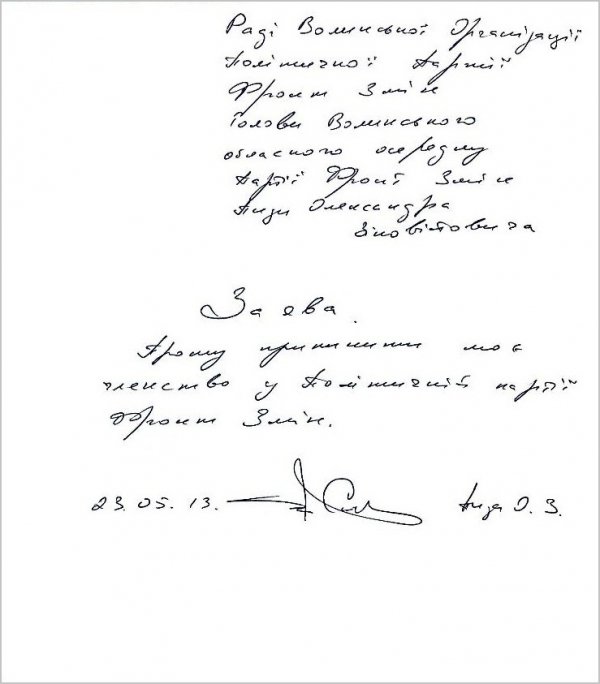 Раді Волинської Організації
Політичної Партії
Фронт Змін
Голови Волинського
обласного осередку
Партії Фронт Змін
Пиди Олександра
Зіновійовича
Заява.
Прошу припинити моє
членство у Політичній партії
Фронт Змін.
23.05.13. Пида О. З.